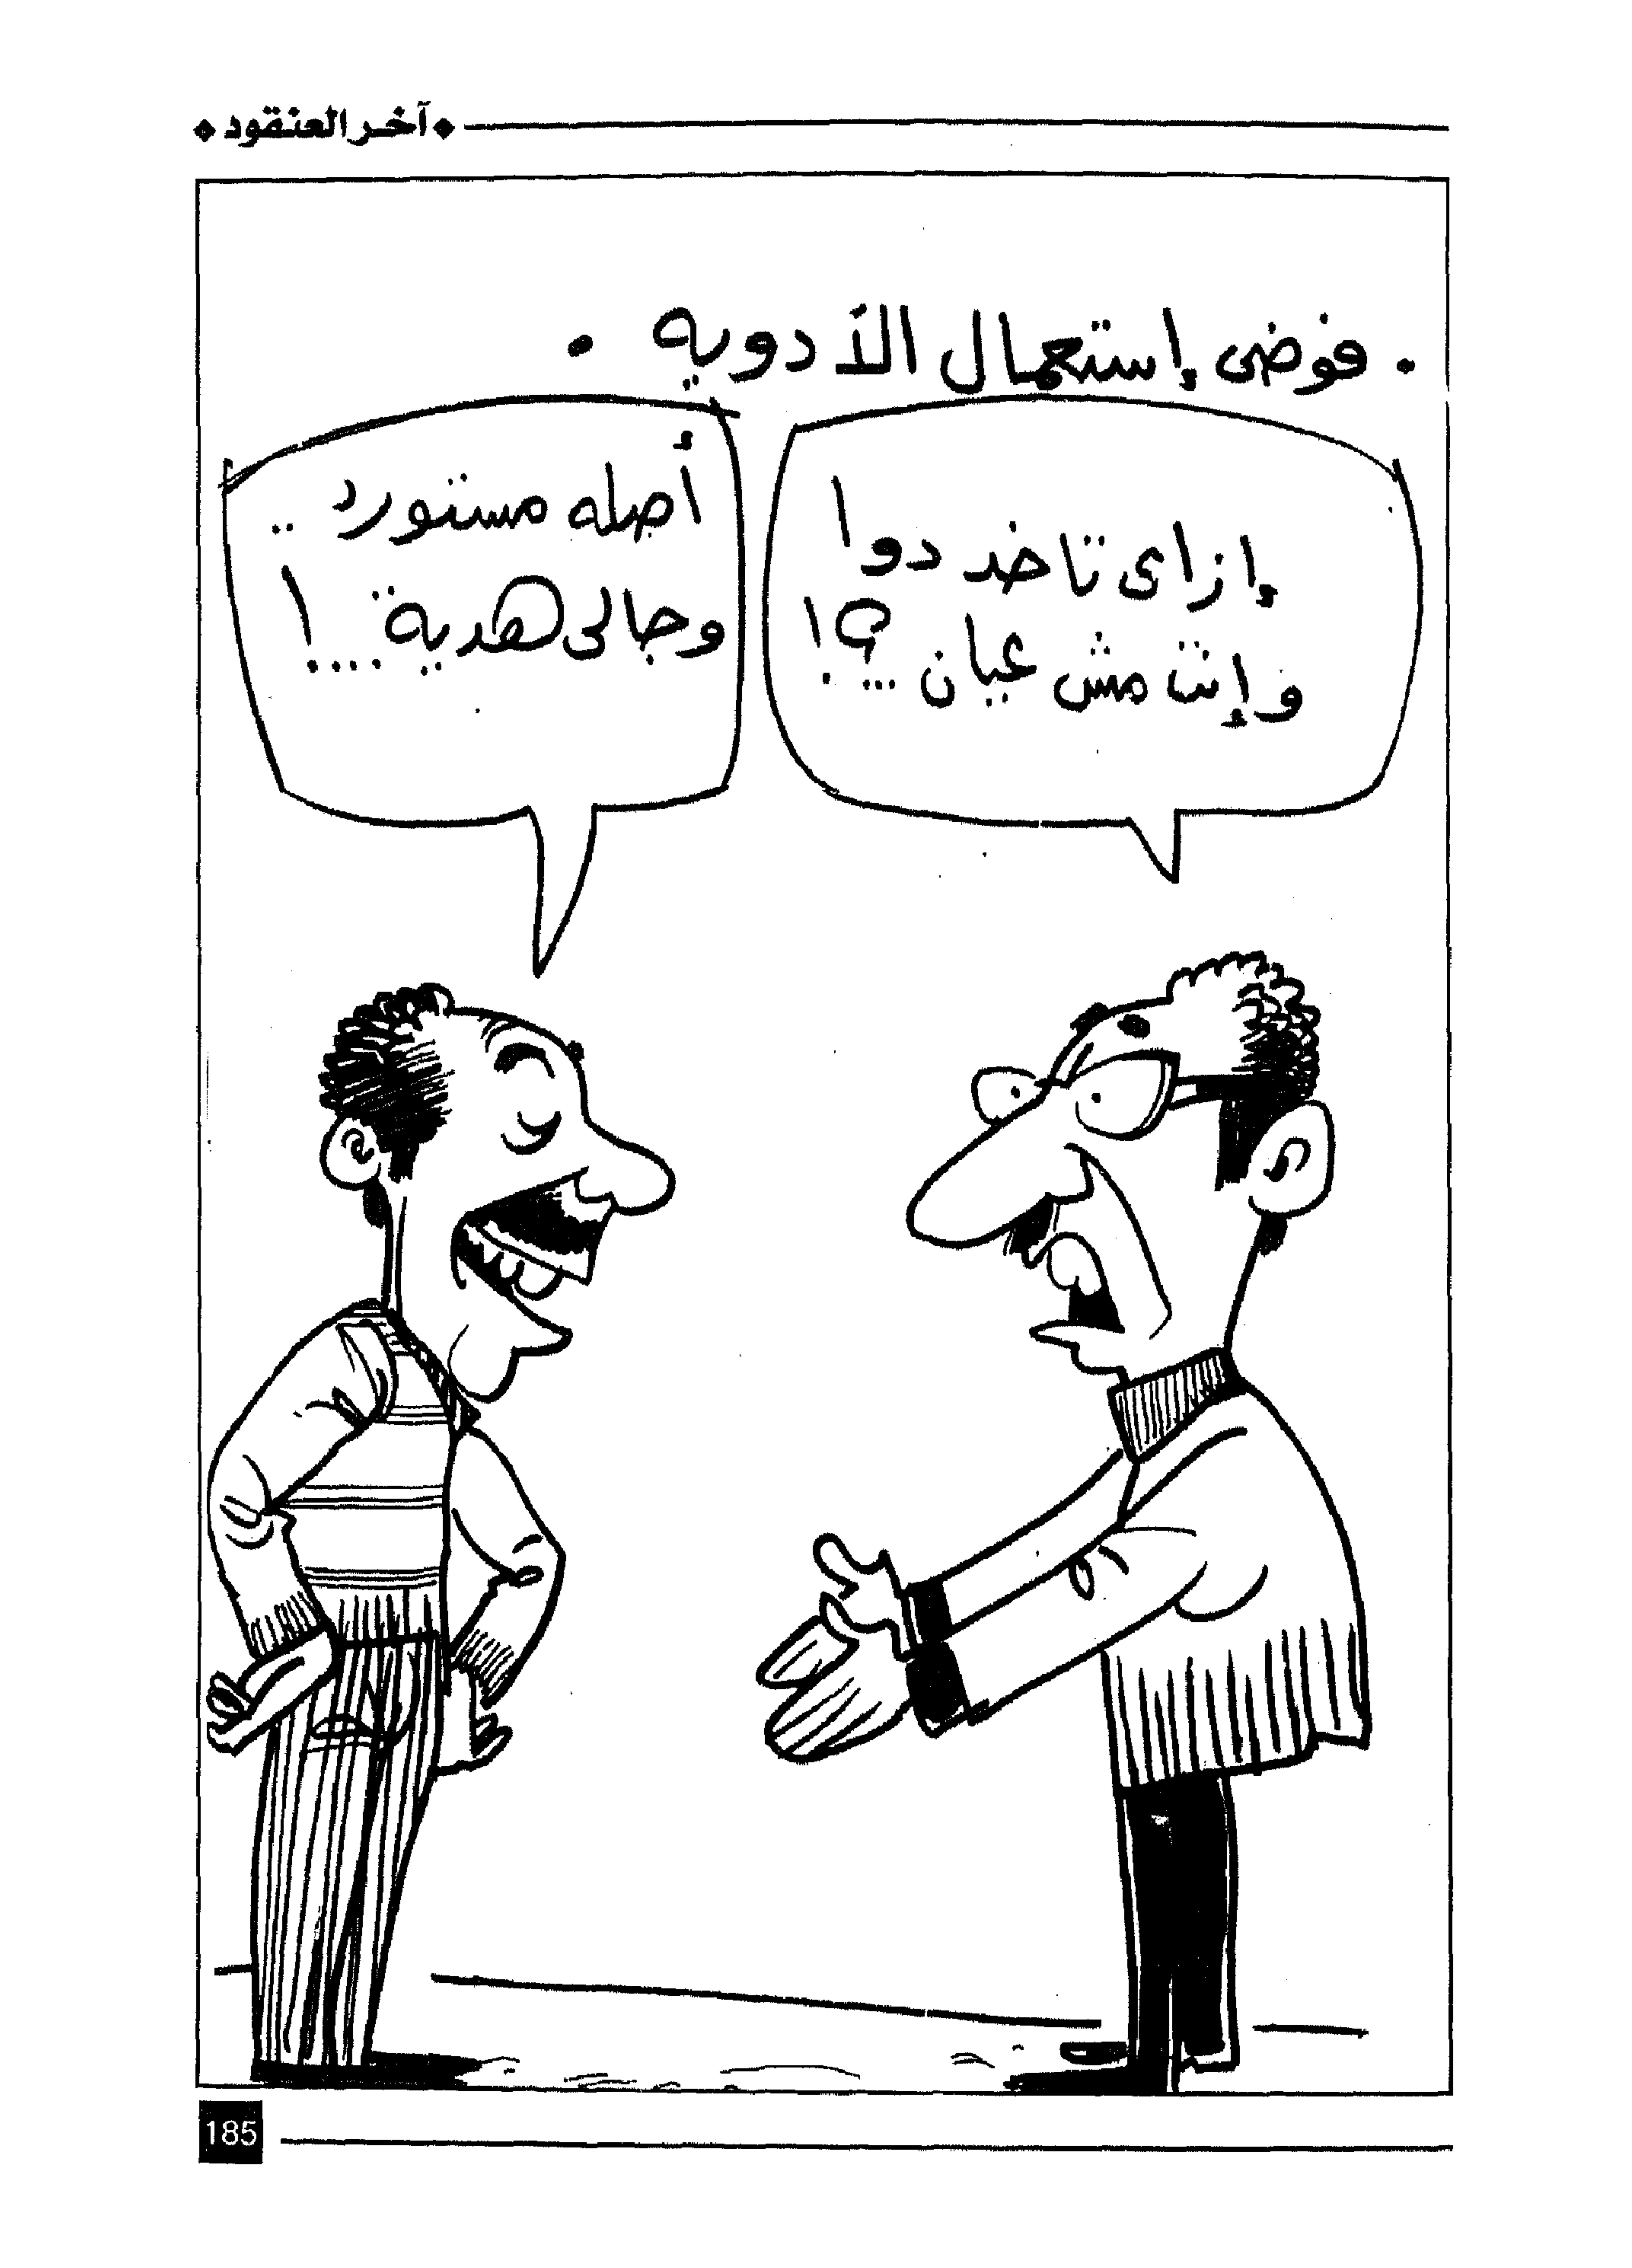 آخر العنقود
. فوضى إستعمال الأدويه .
إزاى تاخد دوا
وإنت مش عيان ...؟!
أصله مستورد ..
وجالى هدية ....!
185